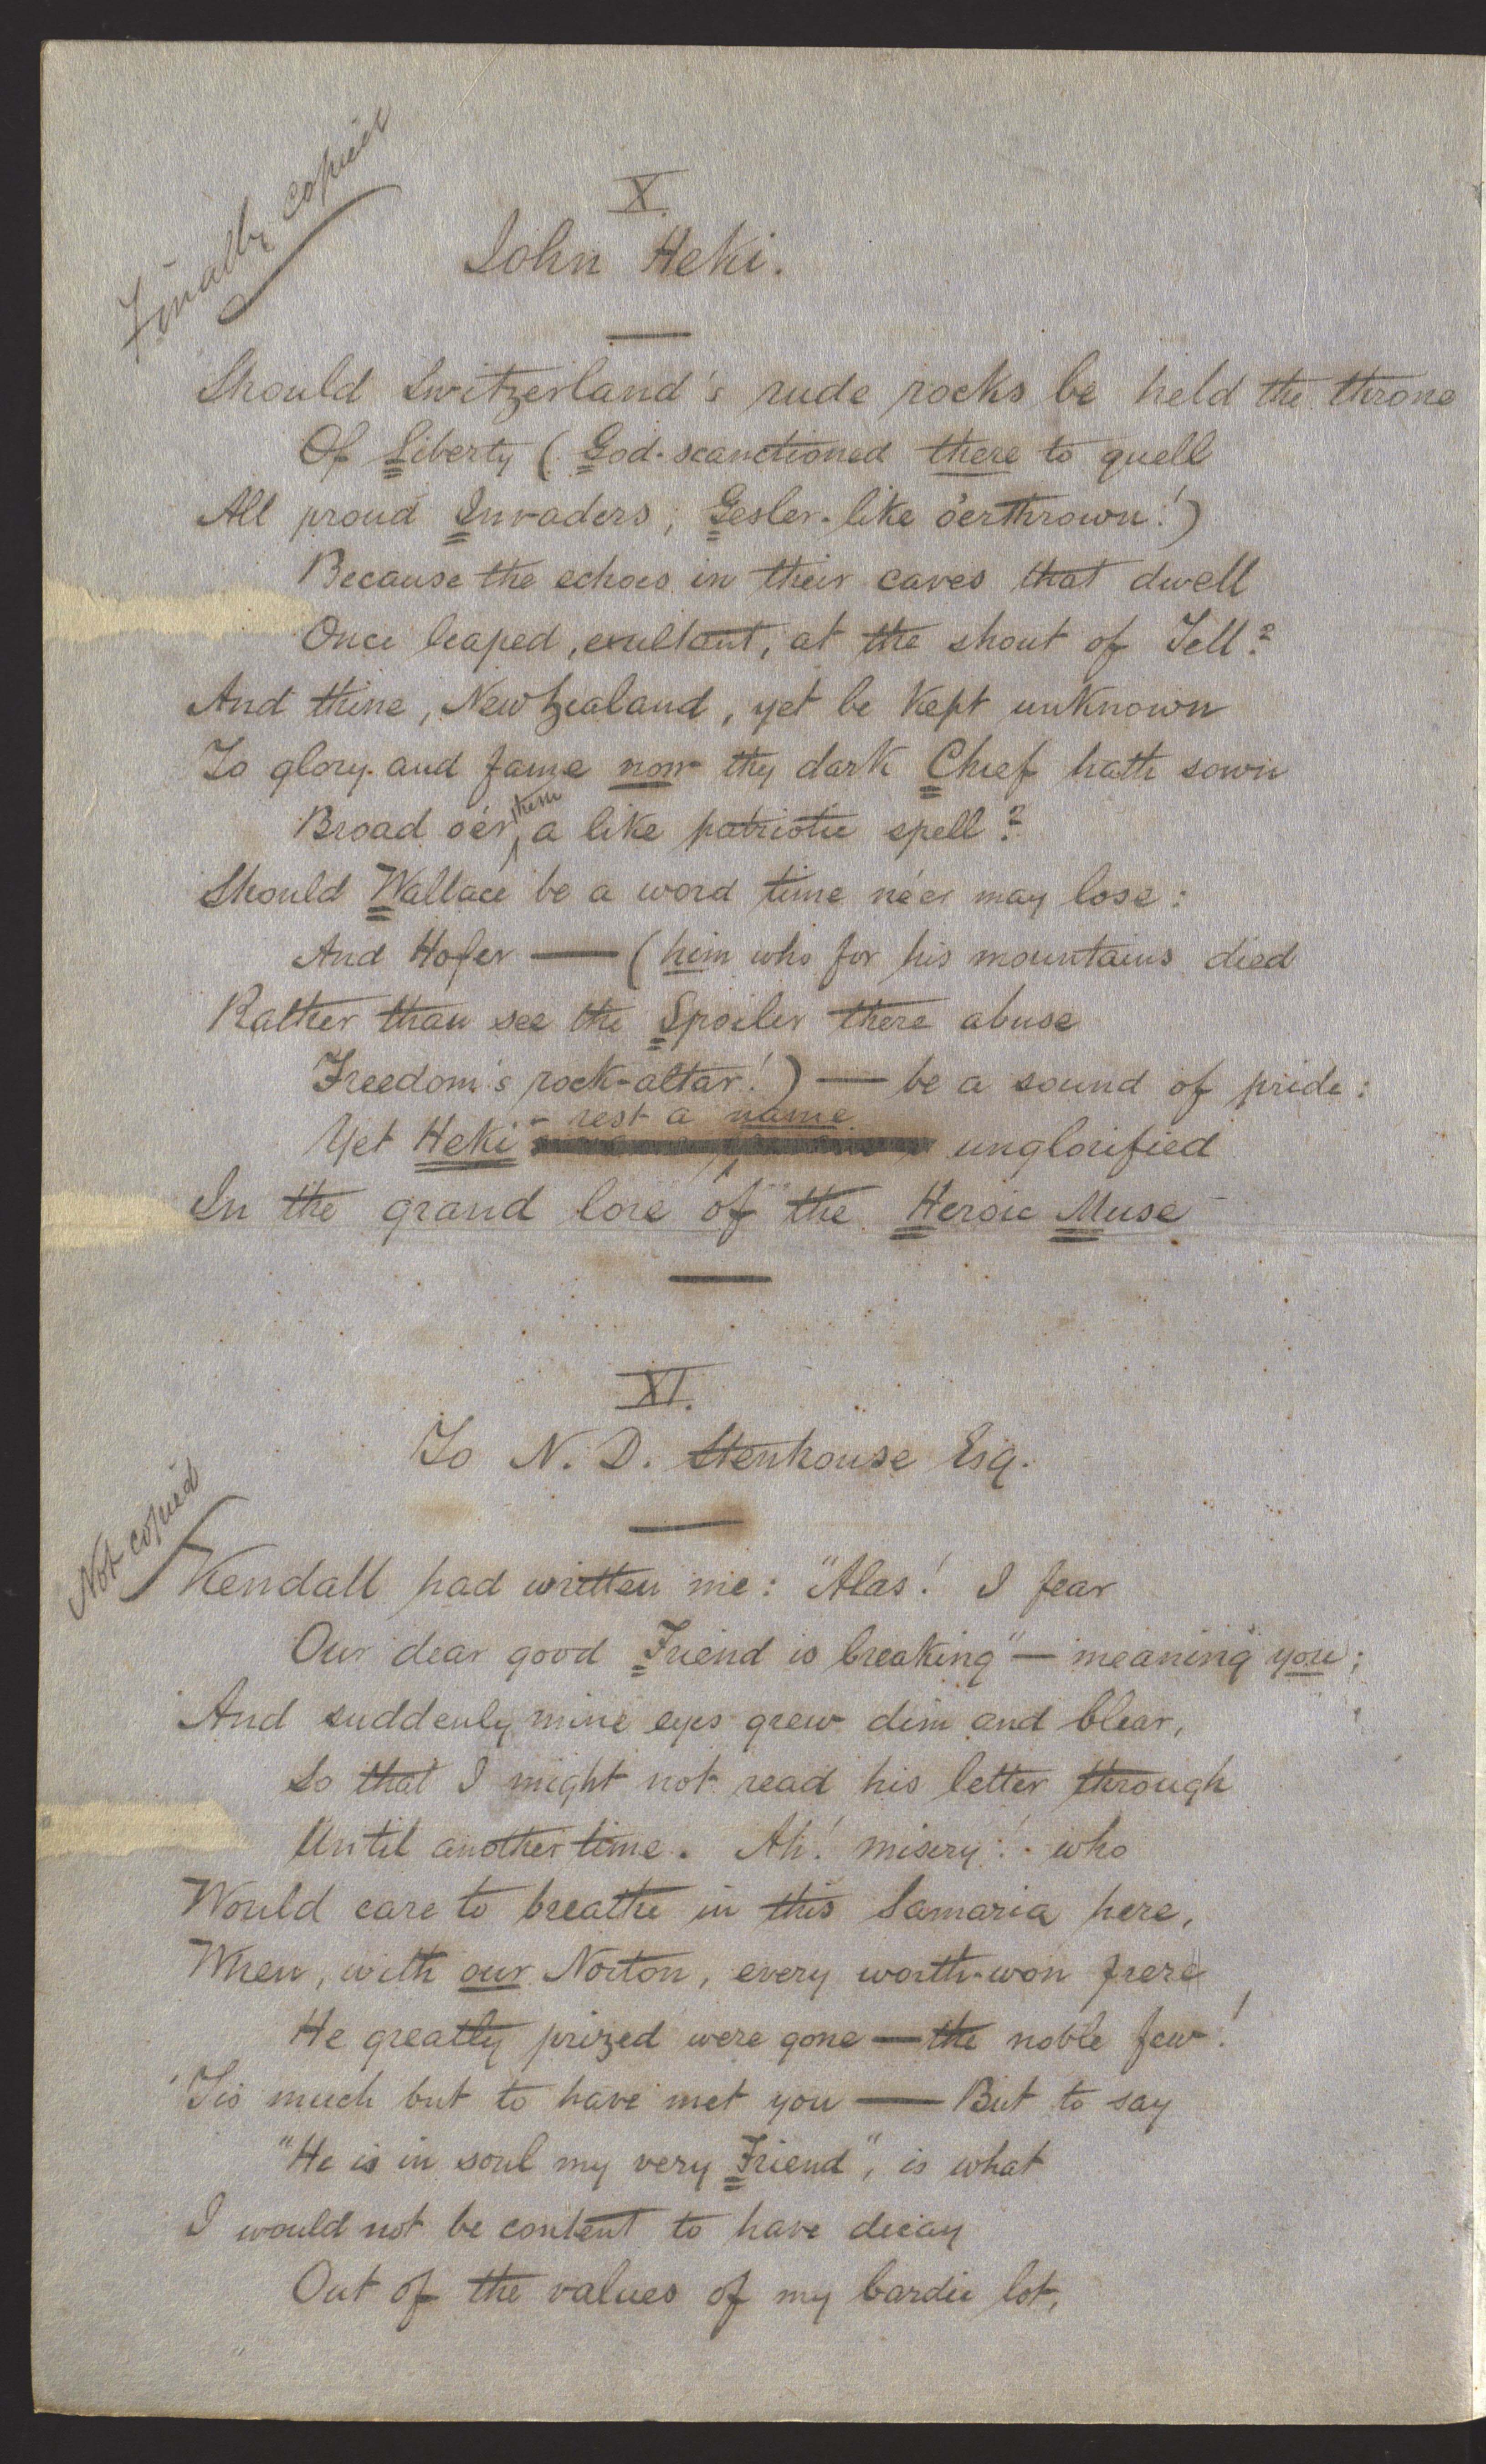 Finally copied
X.
John Heki.
Should Switzerland's rude rocks be held the throne
Of Liberty (God-scanctioned there to quell
All proud Invaders; Gesler-like o'erthrown!)
Because the echoes in their caves that dwell
Once leaped, exultant, at the shout of Tell?
And thine, New Zealand, yet be kept unknown
To glory and fame now thy dark Chief hath sown
them
Broad o'er, a like patriotic spell?
Should Wallace be a word time ne'er may lose:
And Hofer — (him who for his mountains died
Rather than see the Spoiler there abuse
Freedom's rock-altar!) — be a sound of pride:
- rest a name
Yet Heki unglorified
In the grand lore of the Heroic Muse
XI.
To N. D. Stenhouse Esq.
Not copied
Kendall had written me: "Alas! I fear
Our dear good Friend is breaking" — meaning you;
And suddenly mine eyes grew dim and blear,
So that I might not read his letter through
Until another time. Ah! misery! who
Would care to breathe in this Samaria here,
When, with our Norton, every worth-won frere
He greatly prized were gone — the noble few!
'Tis much but to have met you — But to say
"He is in soul my very Friend", is what
I would not be content to have decay
Out of the values of my bardic lot,